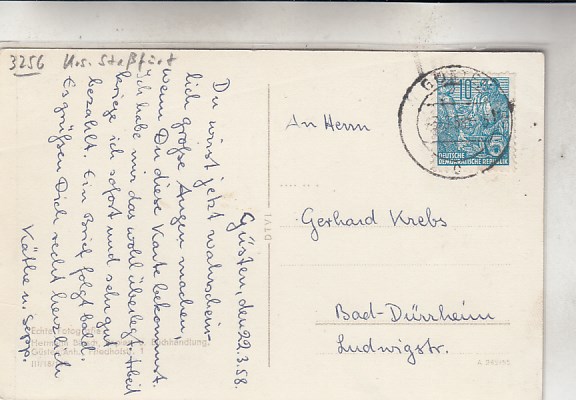 3256 Krs. Staßfurt
Güsten, den 22.3.58.
Du wirst jetzt wahrschein-
lich große Augen machen,
wenn Du diese Karte bekommst.
Ich habe mir das wohl überlegt. Arbeit
kriege ich sofort und sehr gut
bezahlt. Ein Brief folgt bald.
Es grüßen Dich recht herzlich
Käthe u. Sepp.
An Herrn
Gerhard Krebs
Bad-Dürrheim
Ludwigstr.
10+5
DEUTSCHE
DEMOKRATISCHE REPUBLIK
Echte Fotografie
Buchhandlung,
Friedhofstr. 1